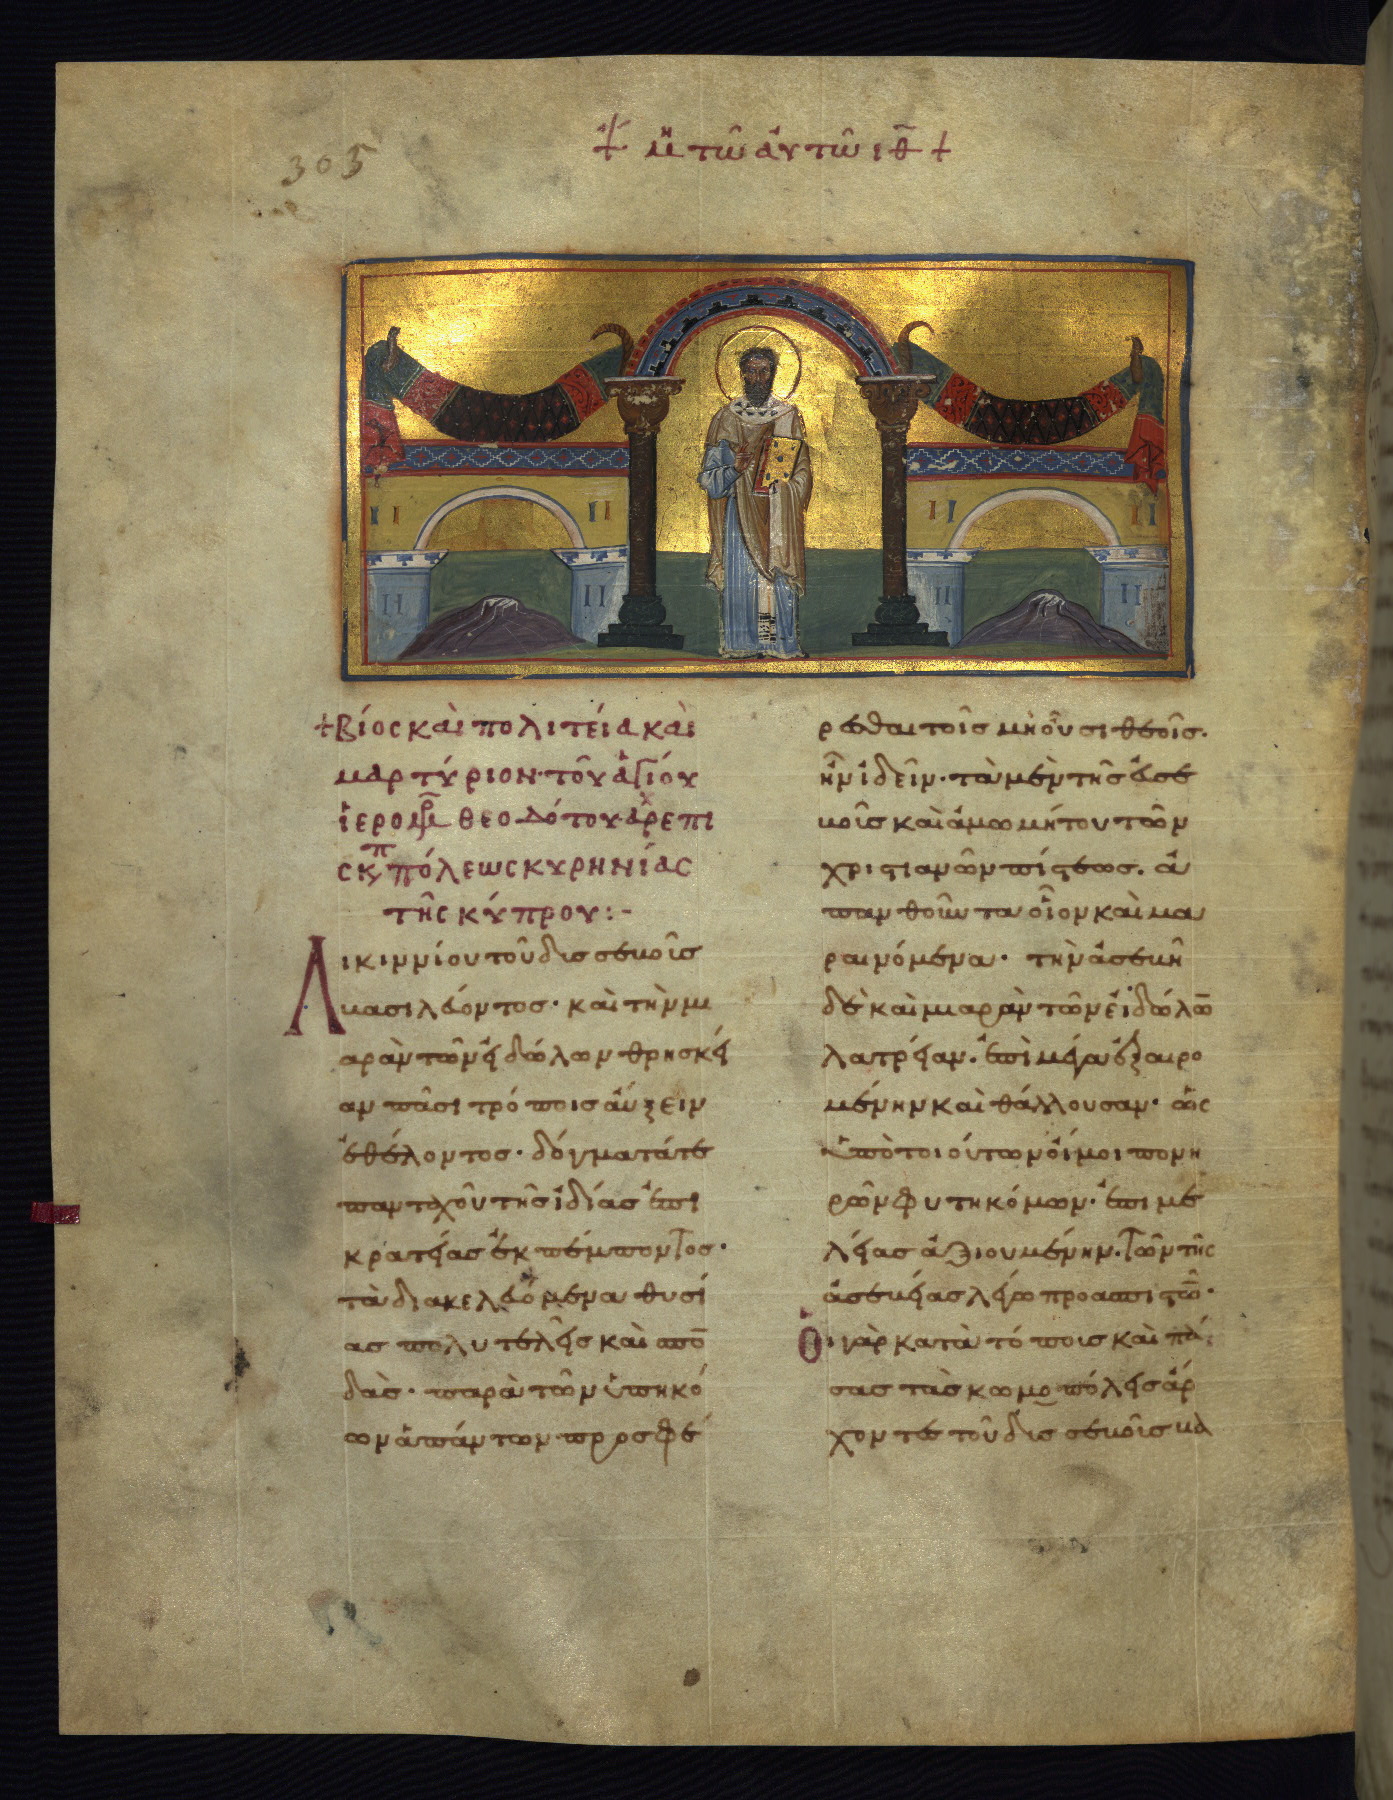 305
+ μη τῶ αὐτῶ ιθ +
+ βίος καὶ πολιτεία καὶ
μαρτύριον τοῦ ἁγίου
ἱερομρ θεοδότου ἀρχεπι
σκπ πόλεως κυρηνίας
τῆς κύπρου :-
Λικιννίου τοῦ δυσσεβοῦς
βασιλεύοντος · καὶ τὴν μι
αρὰν τῶν εἰδώλων θρησκεί
αν πᾶσι τρόποις αὔξειν
ἐθέλοντος · δόγματά τε
πανταχοῦ τῆς ἰδίας ἐπι
κρατείας ἐκπέμποντος ·
τὰ διακελευόμενα θυσί
ας πολυτελεῖς καὶ σπο
δὰς · παρὰ τῶν ὑπηκό
ων ἁπάντων προσφέ
ρεσθαι τοῖς μὴ οὖσι θεοῖς .
ἦν ἰδεῖν · τὰ μὲν τῆς εὐσε
βοῦς καὶ ἀμωμήτου τῶν
χριστιανῶν πίστεως . ἀ
πανθοῦντα οἷον καὶ μα
ραινόμενα · τὴν ἀσεβῆ
δὲ καὶ μιαρὰν τῶν εἰδώλω
λατρείαν . ἐπὶ μέγα ἐξαιρο
μένην καὶ θάλλουσαν · ὡς
ὑπὸ τοιούτων οἴμοι πονη
ρῶν φυτηκόμων · ἐπιμε
λείας ἀξιουμένην . τῶν τῆς
ἀσεβείας λέγω προασπιστῶ ·
Οἱ γὰρ κατὰ τόπους καὶ πά
σας τὰς κώμας πόλεις ἄρ
χοντες τοῦ δυσσεβοῦς βα